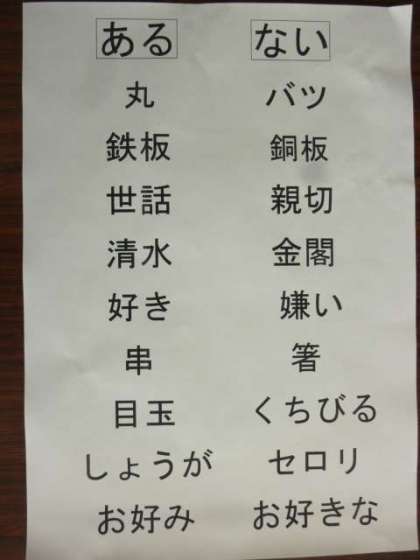 ある ない
丸 バツ
鉄板 銅板
世話 親切
清水 金閣
好き 嫌い
串 箸
目玉 くちびる
しょうが セロリ
お好み お好きな